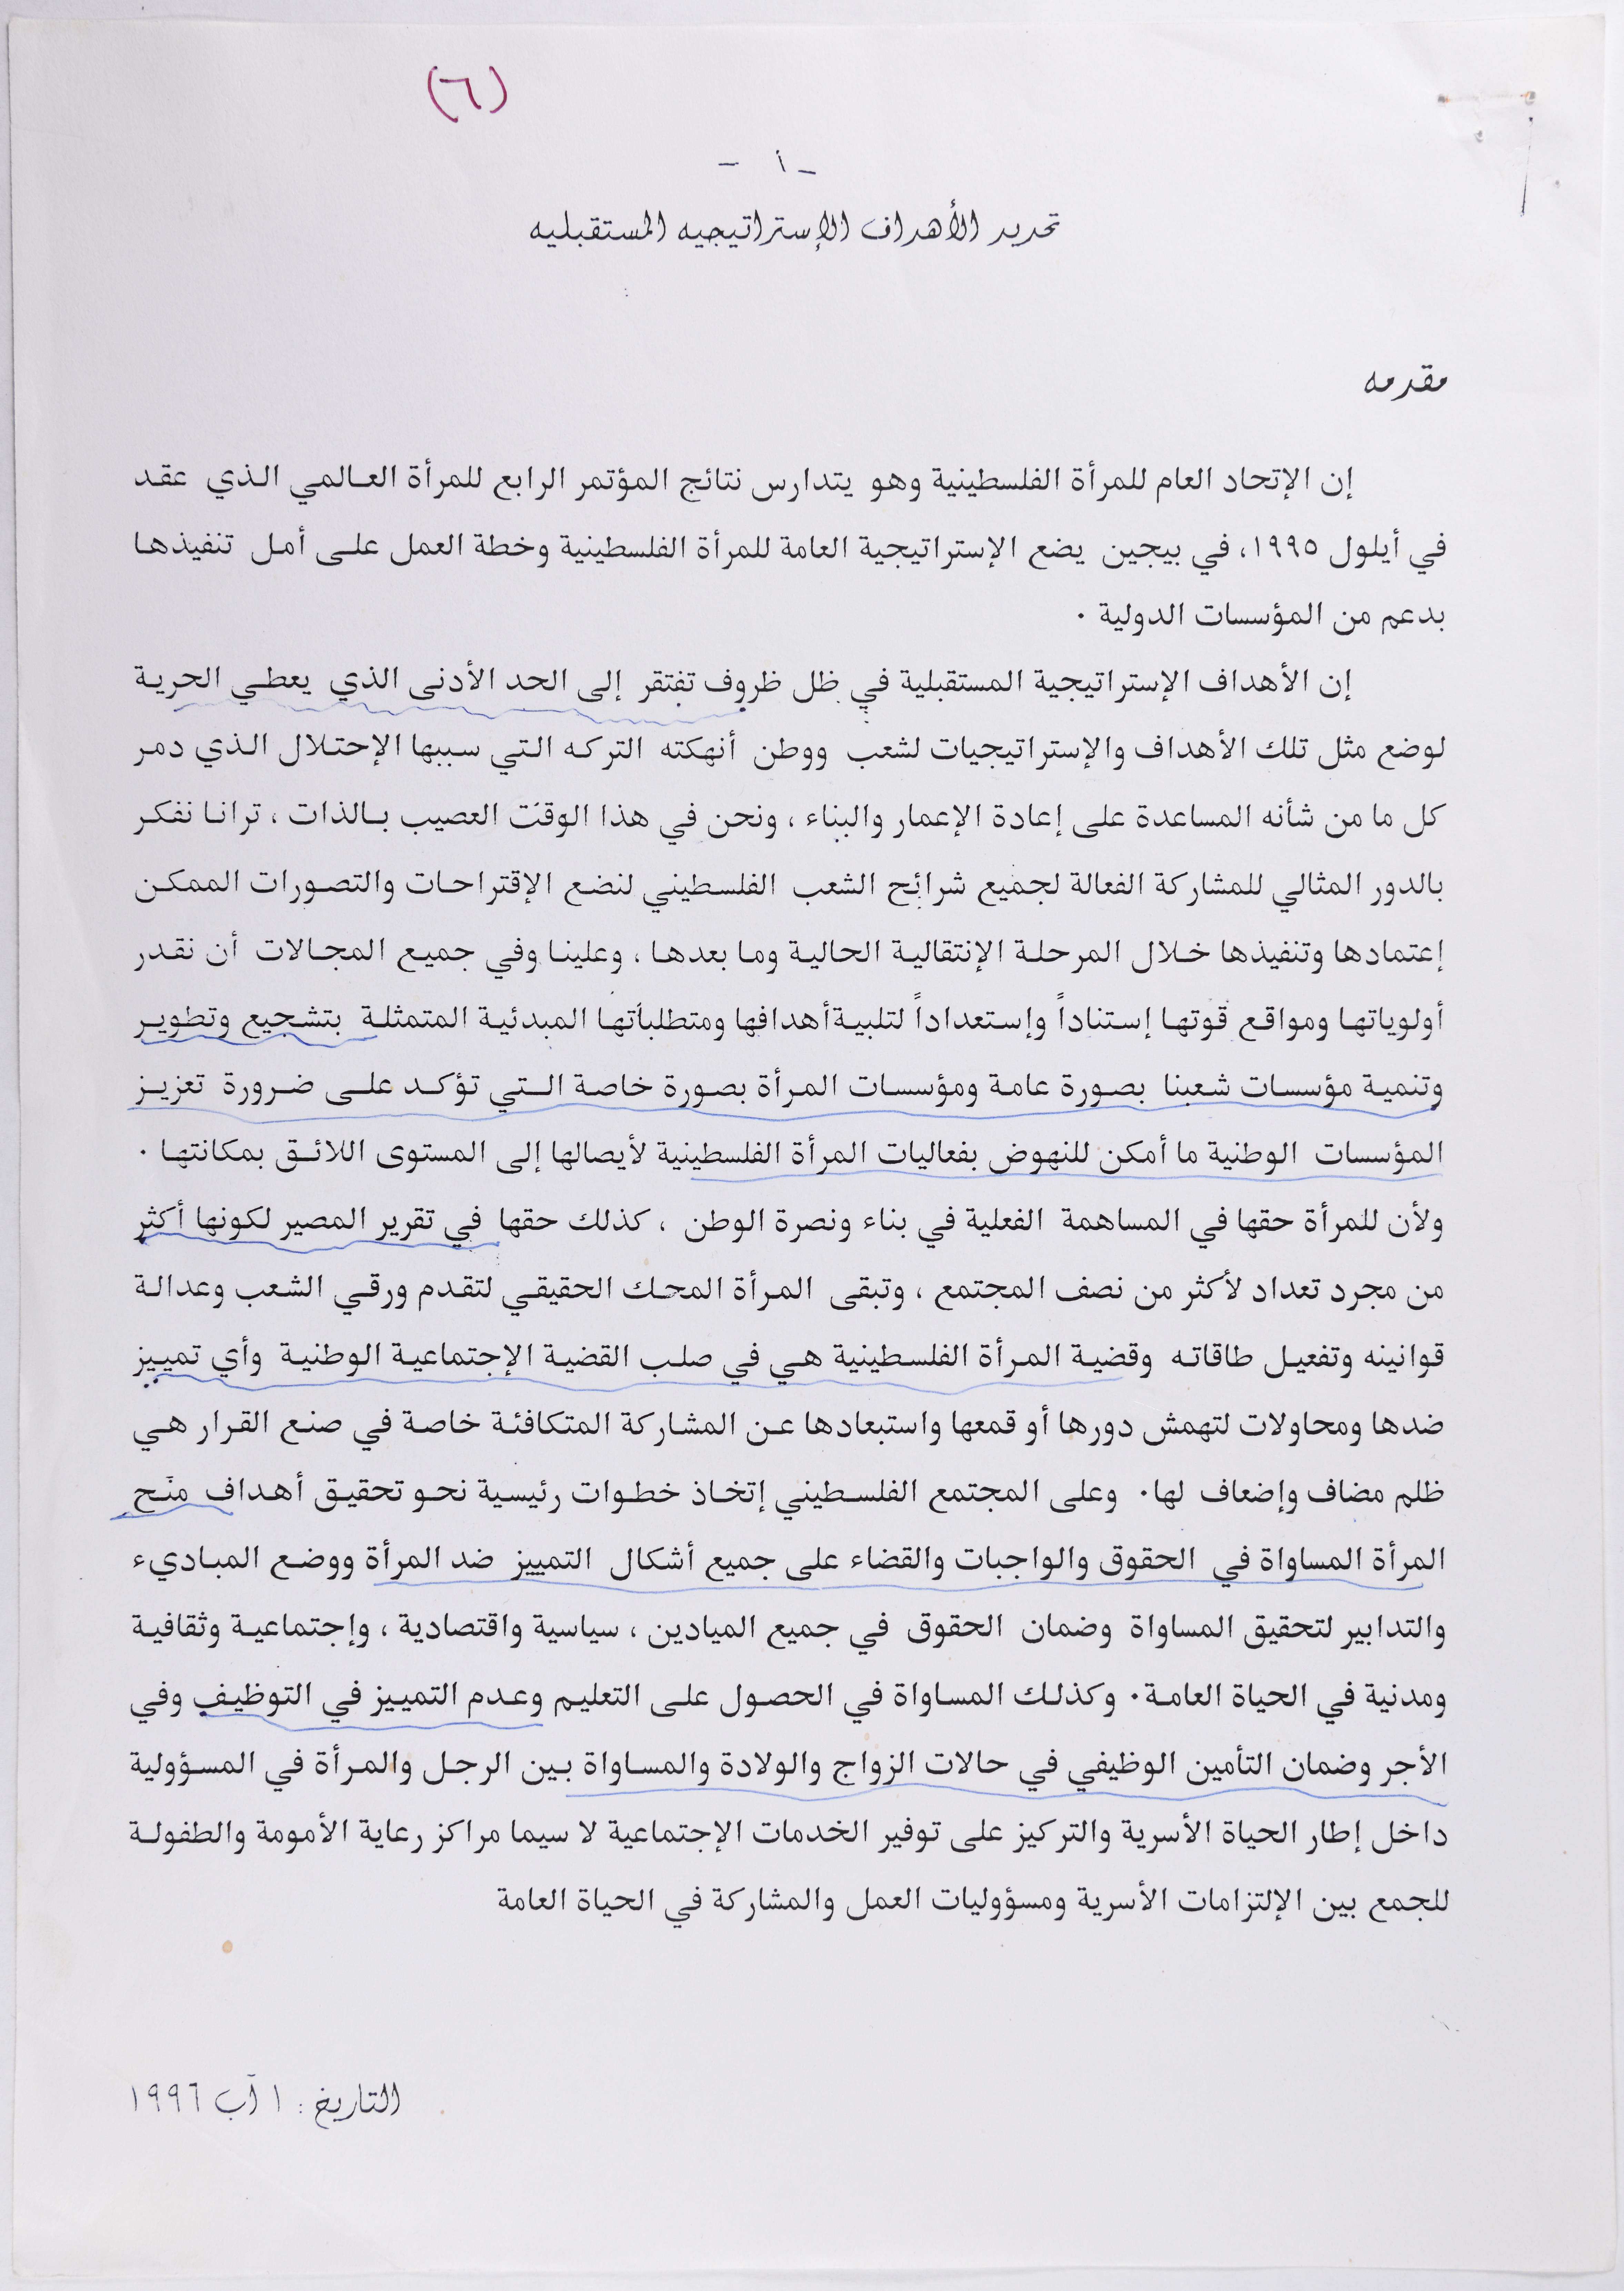 (٦)
- أ -
تحديد الأهداف الإستراتيجيه المستقبليه
مقدمه
إن الإتحاد العام للمرأة الفلسطينية وهو يتدارس نتائج المؤتمر الرابع للمرأة العالمي الذي عقد
في أيلول ١٩٩٥، في بيجين يضع الإستراتيجية العامة للمرأة الفلسطينية وخطة العمل على أمل تنفيذها
بدعم من المؤسسات الدولية ٠
إن الأهداف الإستراتيجية المستقبلية في ظل ظروف تفتقر إلى الحد الأدنى الذي يعطي الحرية
لوضع مثل تلك الأهداف والإستراتيجيات لشعب ووطن أنهكته التركه التي سببها الإحتلال الذي دمر
كل ما من شأنه المساعدة على إعادة الإعمار والبناء ، ونحن في هذا الوقت العصيب بالذات ، ترانا نفكر
بالدور المثالي للمشاركة الفعالة لجميع شرائح الشعب الفلسطيني لنضع الإقتراحات والتصورات الممكن
إعتمادها وتنفيذها خلال المرحلة الإنتقالية الحالية وما بعدها ، وعلينا وفي جميع المجالات أن نقدر
أولوياتها ومواقع قوتها إستناداً وإستعداداً لتلبية أهدافها ومتطلباتها المبدئية المتمثلة بتشجيع وتطوير
وتنمية مؤسسات شعبنا بصورة عامة ومؤسسات المرأة بصورة خاصة التي تؤكد على ضرورة تعزيز
المؤسسات الوطنية ما أمكن للنهوض بفعاليات المرأة الفلسطينية لأيصالها إلى المستوى اللائق بمكانتها ٠
ولأن للمرأة حقها في المساهمة الفعلية في بناء ونصرة الوطن ، كذلك حقها في تقرير المصير لكونها أكثر
من مجرد تعداد لأكثر من نصف المجتمع ، وتبقى المرأة المحك الحقيقي لتقدم ورقي الشعب وعدالة
قوانينه وتفعيل طاقاته وقضية المرأة الفلسطينية هي في صلب القضية الإجتماعية الوطنية وأي تمييز
ضدها ومحاولات لتهمش دورها أو قمعها واستبعادها عن المشاركة المتكافئة خاصة في صنع القرار هي
ظلم مضاف وإضعاف لها٠ وعلى المجتمع الفلسطيني إتخاذ خطوات رئيسية نحو تحقيق أهداف منح
المرأة المساواة في الحقوق والواجبات والقضاء على جميع أشكال التمييز ضد المرأة ووضع المباديء
والتدابير لتحقيق المساواة وضمان الحقوق في جميع الميادين ، سياسية واقتصادية ، وإجتماعية وثقافية
ومدنية في الحياة العامة٠ وكذلك المساواة في الحصول على التعليم وعدم التمييز في التوظيف وفي
الأجر وضمان التأمين الوظيفي في حالات الزواج والولادة والمساواة بين الرجل والمرأة في المسؤولية
داخل إطار الحياة الأسرية والتركيز على توفير الخدمات الإجتماعية لا سيما مراكز رعاية الأمومة والطفولة
للجمع بين الإلتزامات الأسرية ومسؤوليات العمل والمشاركة في الحياة العامة
التاريخ : ١ آب ١٩٩٦